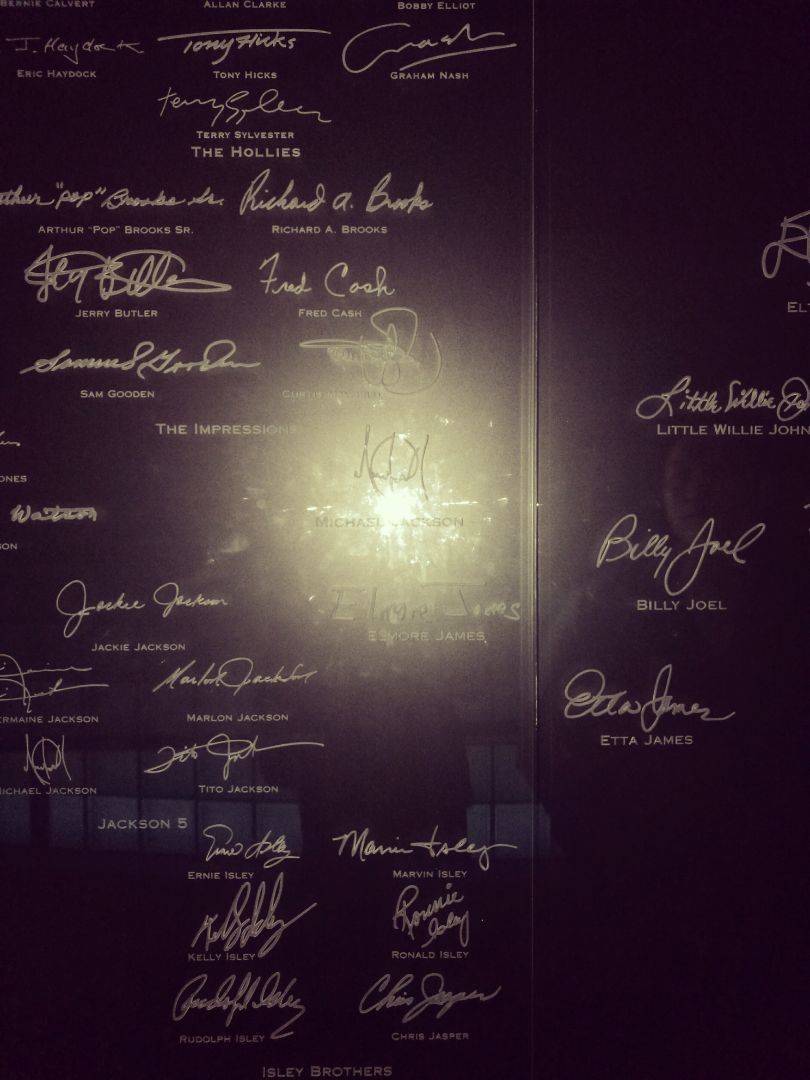 BERNIE CALVERT ALLAN CLARKE BOBBY ELLIOT
J. Haydock Tony Hicks GNash
ERIC HAYDOCK TONY HICKS GRAHAM NASH
Terry Sylvester
TERRY SYLVESTER
THE HOLLIES
"Pop" Brooks Sr. Richard A. Brooks
ARTHUR "POP" BROOKS SR. RICHARD A. BROOKS
Jerry Butler Fred Cash
JERRY BUTLER FRED CASH
Samuel Gooden
SAM GOODEN CURTIS MAYFIELD
THE IMPRESSIONS
MICHAEL JACKSON
Elmore James
ELMORE JAMES
Watson
Jackie Jackson
JACKIE JACKSON
Marlon Jackson
ERMAINE JACKSON MARLON JACKSON
Tito Jackson
MICHAEL JACKSON TITO JACKSON
JACKSON 5
Ernie Isley Marvin Isley
ERNIE ISLEY MARVIN ISLEY
Kelly Isley Ronnie Isley
KELLY ISLEY RONALD ISLEY
Rudolph Isley Chris Jasper
RUDOLPH ISLEY CHRIS JASPER
ISLEY BROTHERS
Little Willie
LITTLE WILLIE JOHN
Billy Joel
BILLY JOEL
Etta James
ETTA JAMES